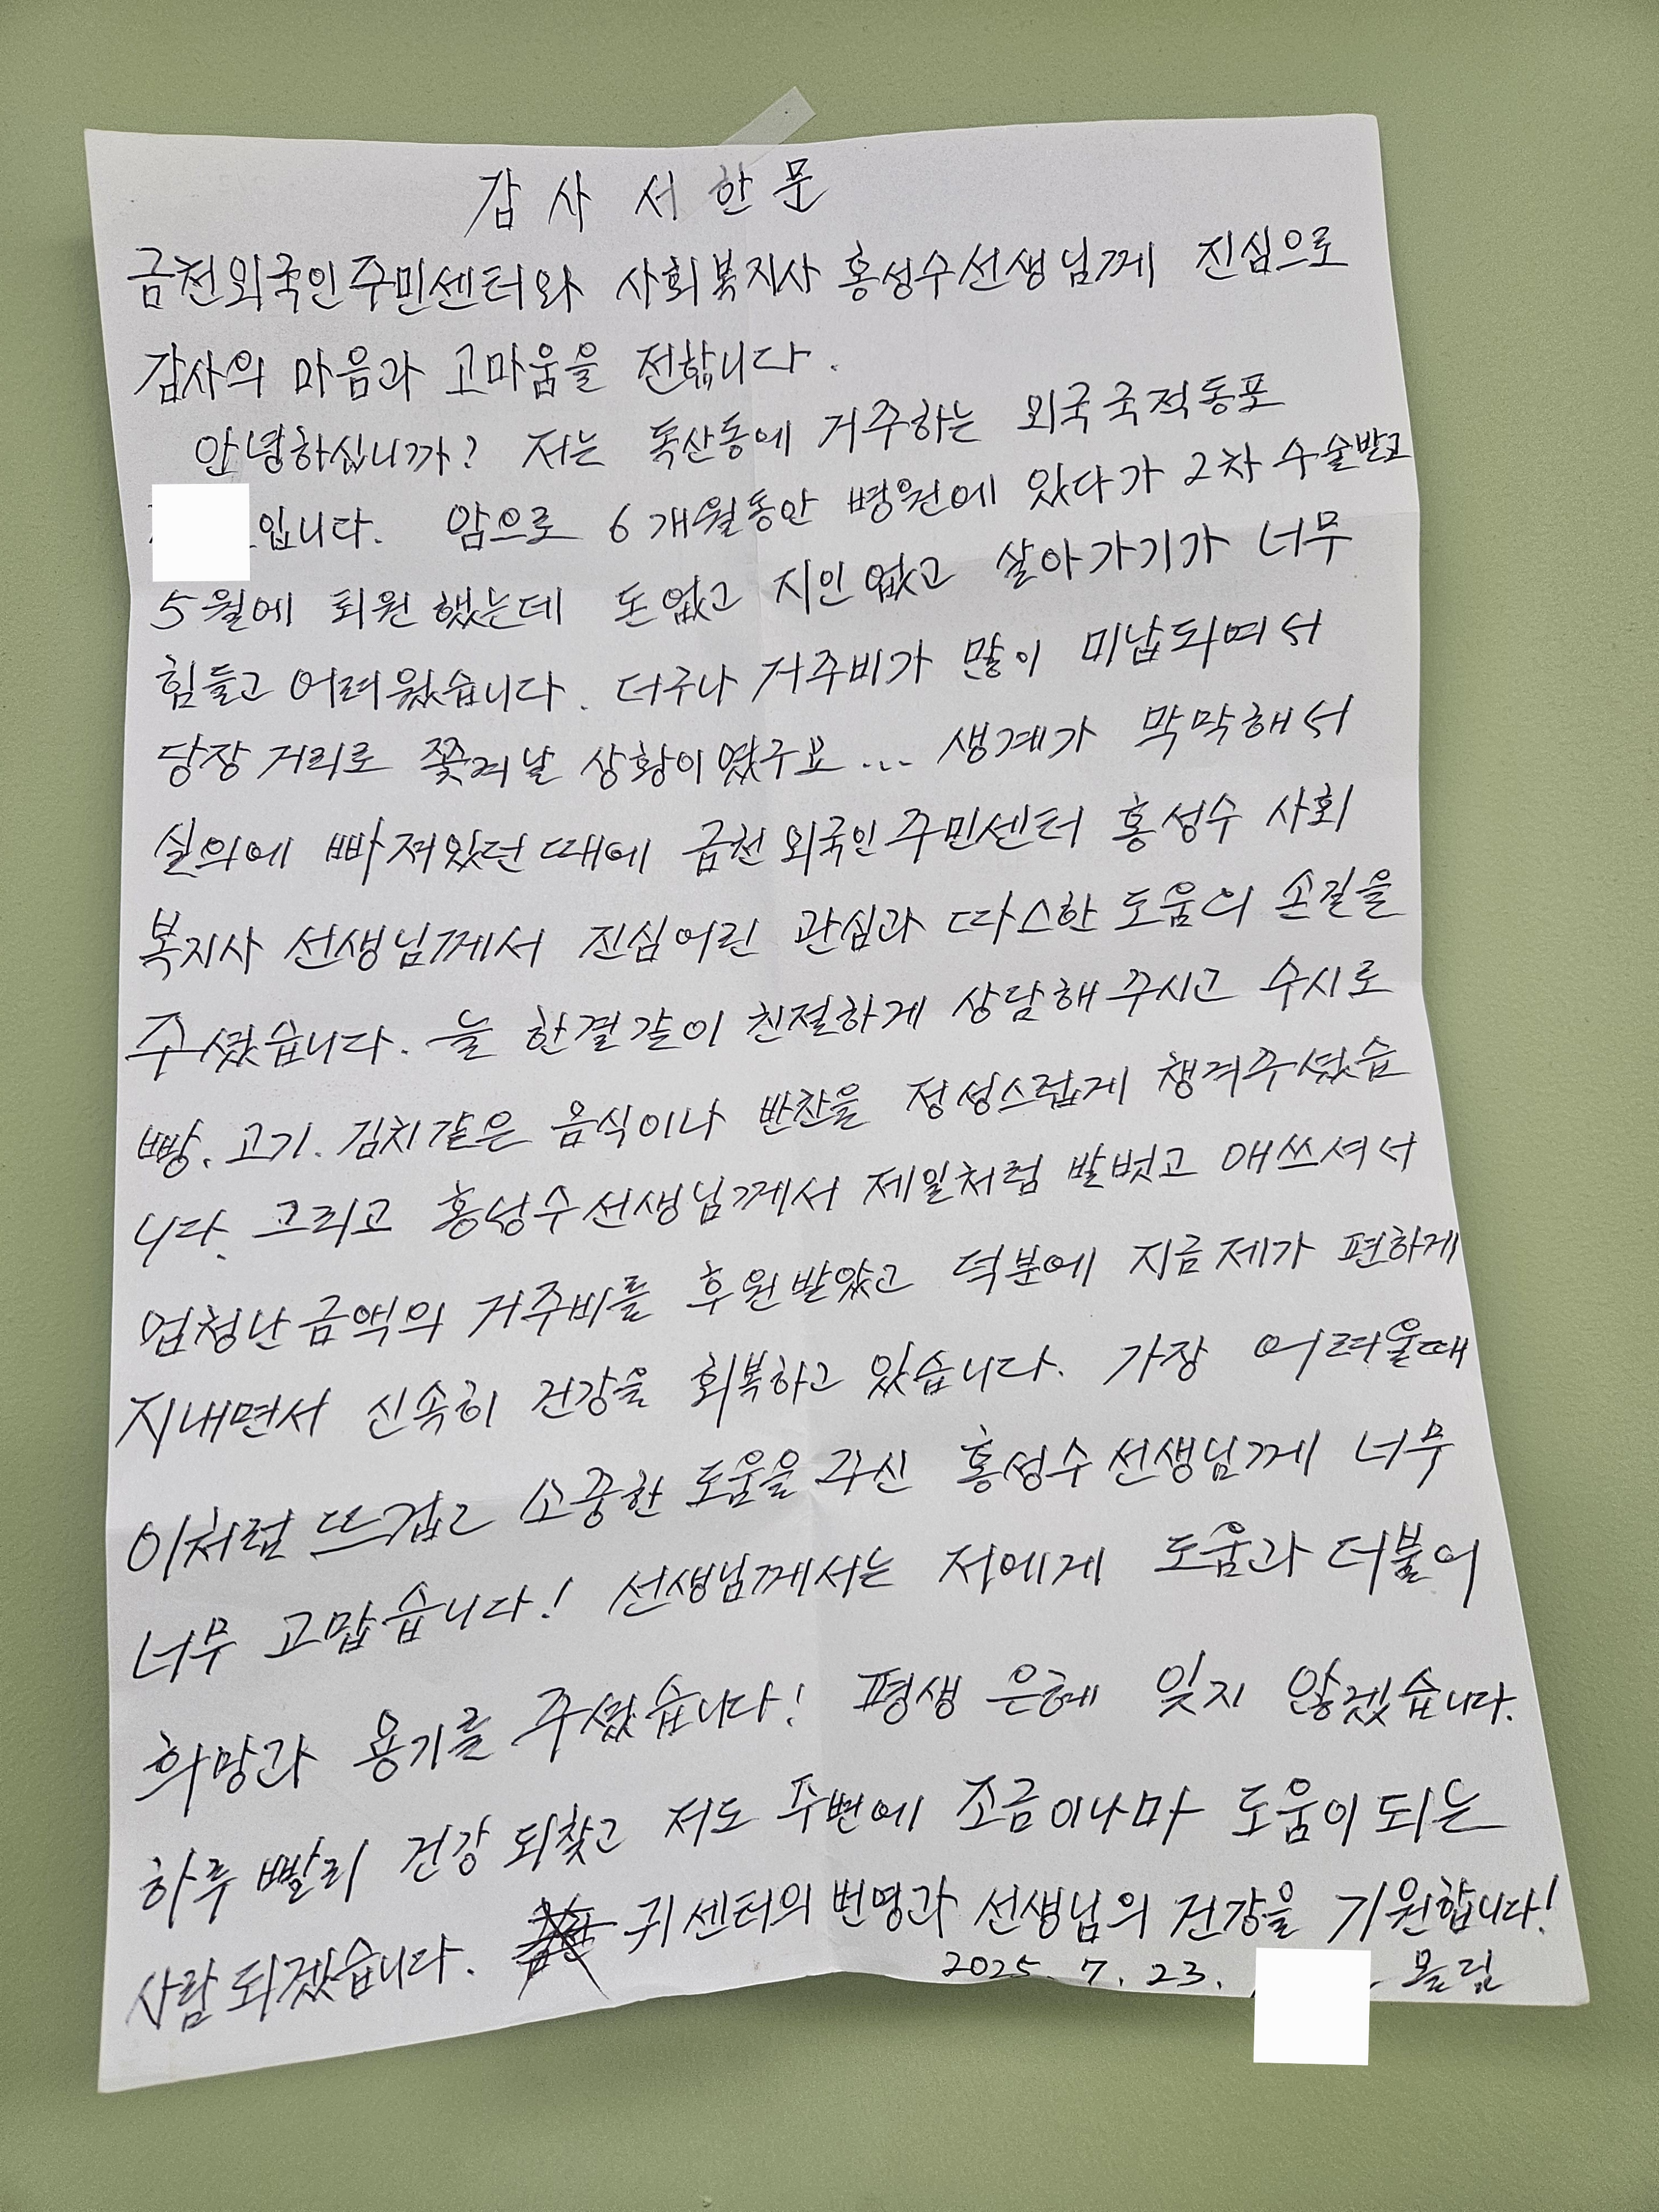 감사서한문
금천외국인주민센터와 사회복지사 홍성수선생님께 진심으로
감사의 마음과 고마움을 전합니다.
안녕하십니까? 저는 독산동에 거주하는 외국국적동포
입니다. 암으로 6개월동안 병원에 있다가 2차 수술받고
5월에 퇴원했는데 돈없고 지인없고 살아가기가 너무
힘들고 어려웠습니다. 더구나 거주비가 많이 미납되여서
당장 거리로 쫓겨날 상황이였구요... 생계가 막막해서
실의에 빠져있던 때에 금천외국인주민센터 홍성수 사회
복지사 선생님께서 진심어린 관심과 따스한 도움의 손길을
주셨습니다. 늘 한결같이 친절하게 상담해주시고 수시로
빵. 고기. 김치같은 음식이나 반찬을 정성스럽게 챙겨주셨습
니다. 그리고 홍성수선생님께서 제일처럼 발벗고 애쓰셔서
엄청난 금액의 거주비를 후원받았고 덕분에 지금 제가 편하게
지내면서 신속히 건강을 회복하고 있습니다. 가장 어려울때
이처럼 뜨겁고 소중한 도움을 주신 홍성수선생님께 너무
너무 고맙습니다! 선생님께서는 저에게 도움과 더불어
희망과 용기를 주셨습니다! 평생 은혜 잊지 않겠습니다.
하루 빨리 건강 되찾고 저도 주변에 조금이나마 도움이 되는
사람 되겠습니다. 귀센터의 번영과 선생님의 건강을 기원합니다!
2025. 7. 23. 올림